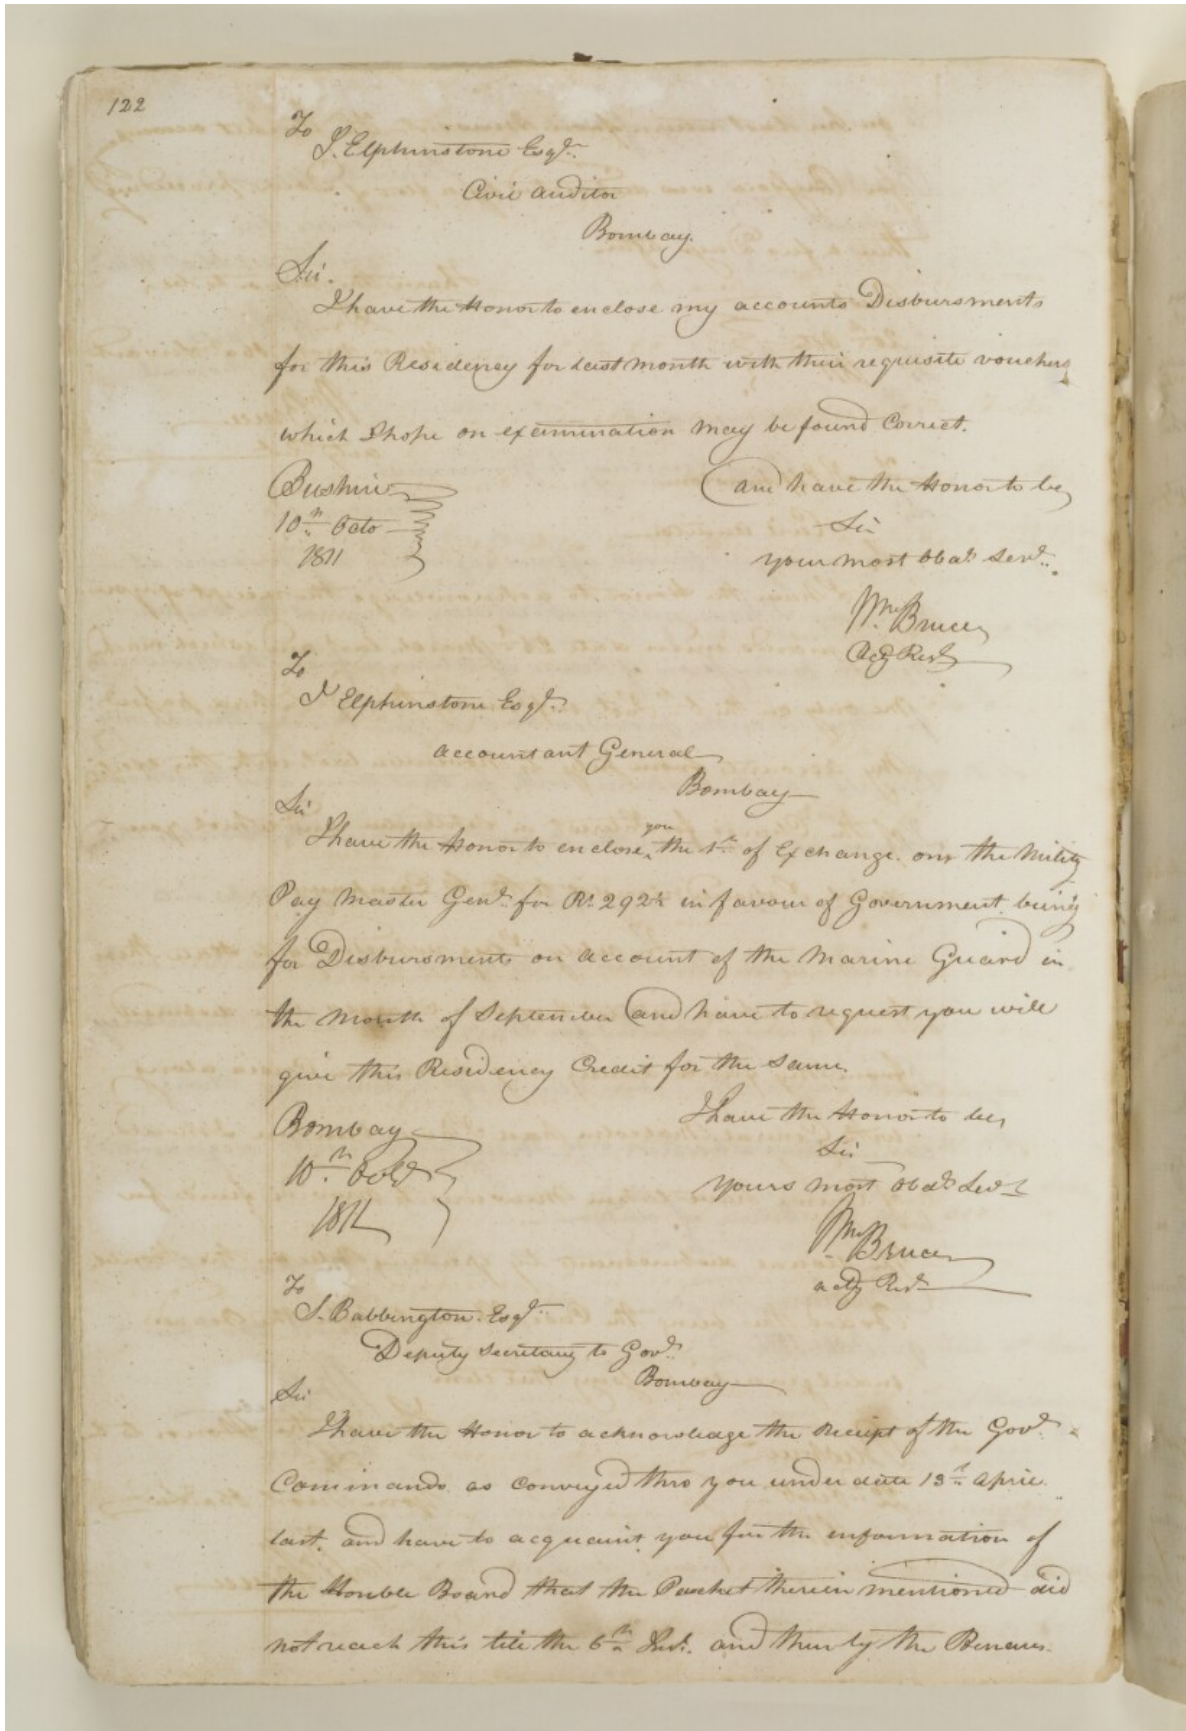 122
To
J. Elphinstone Esqr.
Civil Auditor
Bombay.
Sir.
I have the Honor to enclose my accounts Disbursments
for this Residency for last month with their requisite vouchers
which I hope on examination may be found Correct.
Bushire and have the Honor to be,
10th Octo Sir
1811 your most Obdt. Servt.
Wm. Bruce
Actg Rest
To
J Elphinstone Esqr.
Accountant General
Bombay
Sir
I have the Honor to enclose you the 1st of Exchange on the Mility
Pay Master Genl. for Rs. 292 in favour of Government being
for Disbursments on account of the Marine Guard in
the Month of September and have to request you will
give this Residency Credit for the Same.
Bombay I have the Honor to be,
10th Octr Sir
1811 Yours most Obdt. Servt
Wm Bruce
actg Rest
To
J. Babbington Esqr.
Deputy Secretary to Govt.
Bombay
Sir
I have the Honor to acknowledge the Receipt of the Govt.
Commands as conveyed thro you under date 13th April
last, and have to acquaint you for the information of
the Honble Board that the Packet therein mentioned did
not reach this till the 6th Inst. and then by the Benares